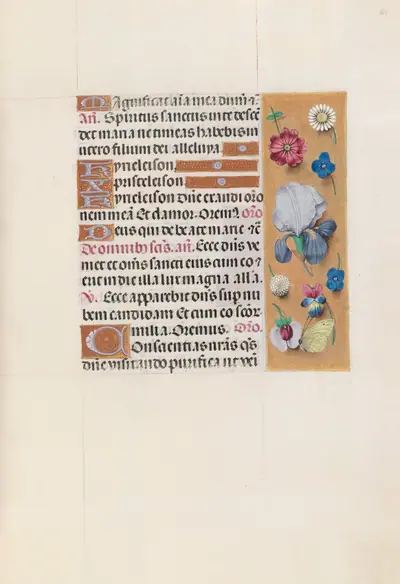 Magnificat aīa mea dium ꝛ.
An̄. Spiritus sanctus in te descē
det maria ne timeas habebis in
utero filium dei alleluya.
Kyrieleison.
Xp̄isteleison.
Kyrieleison Dn̄e exaudi oro
nem meā Et clamor. Orem⁹. Oro
Deus qui de beate marie ꝛ.
De omnibus scīs. an̄. Ecce dn̄s ve
niet et om̄s sancti eius cum eo ꝛ
erit in die illa lux magna alla.
Ecce apparebit dn̄s sup nu
bem candidam Et cum eo scōr
milia. Oremus. Oro.
Consciencias nr̄as q̄s
dn̄e visitando purifica ut veī